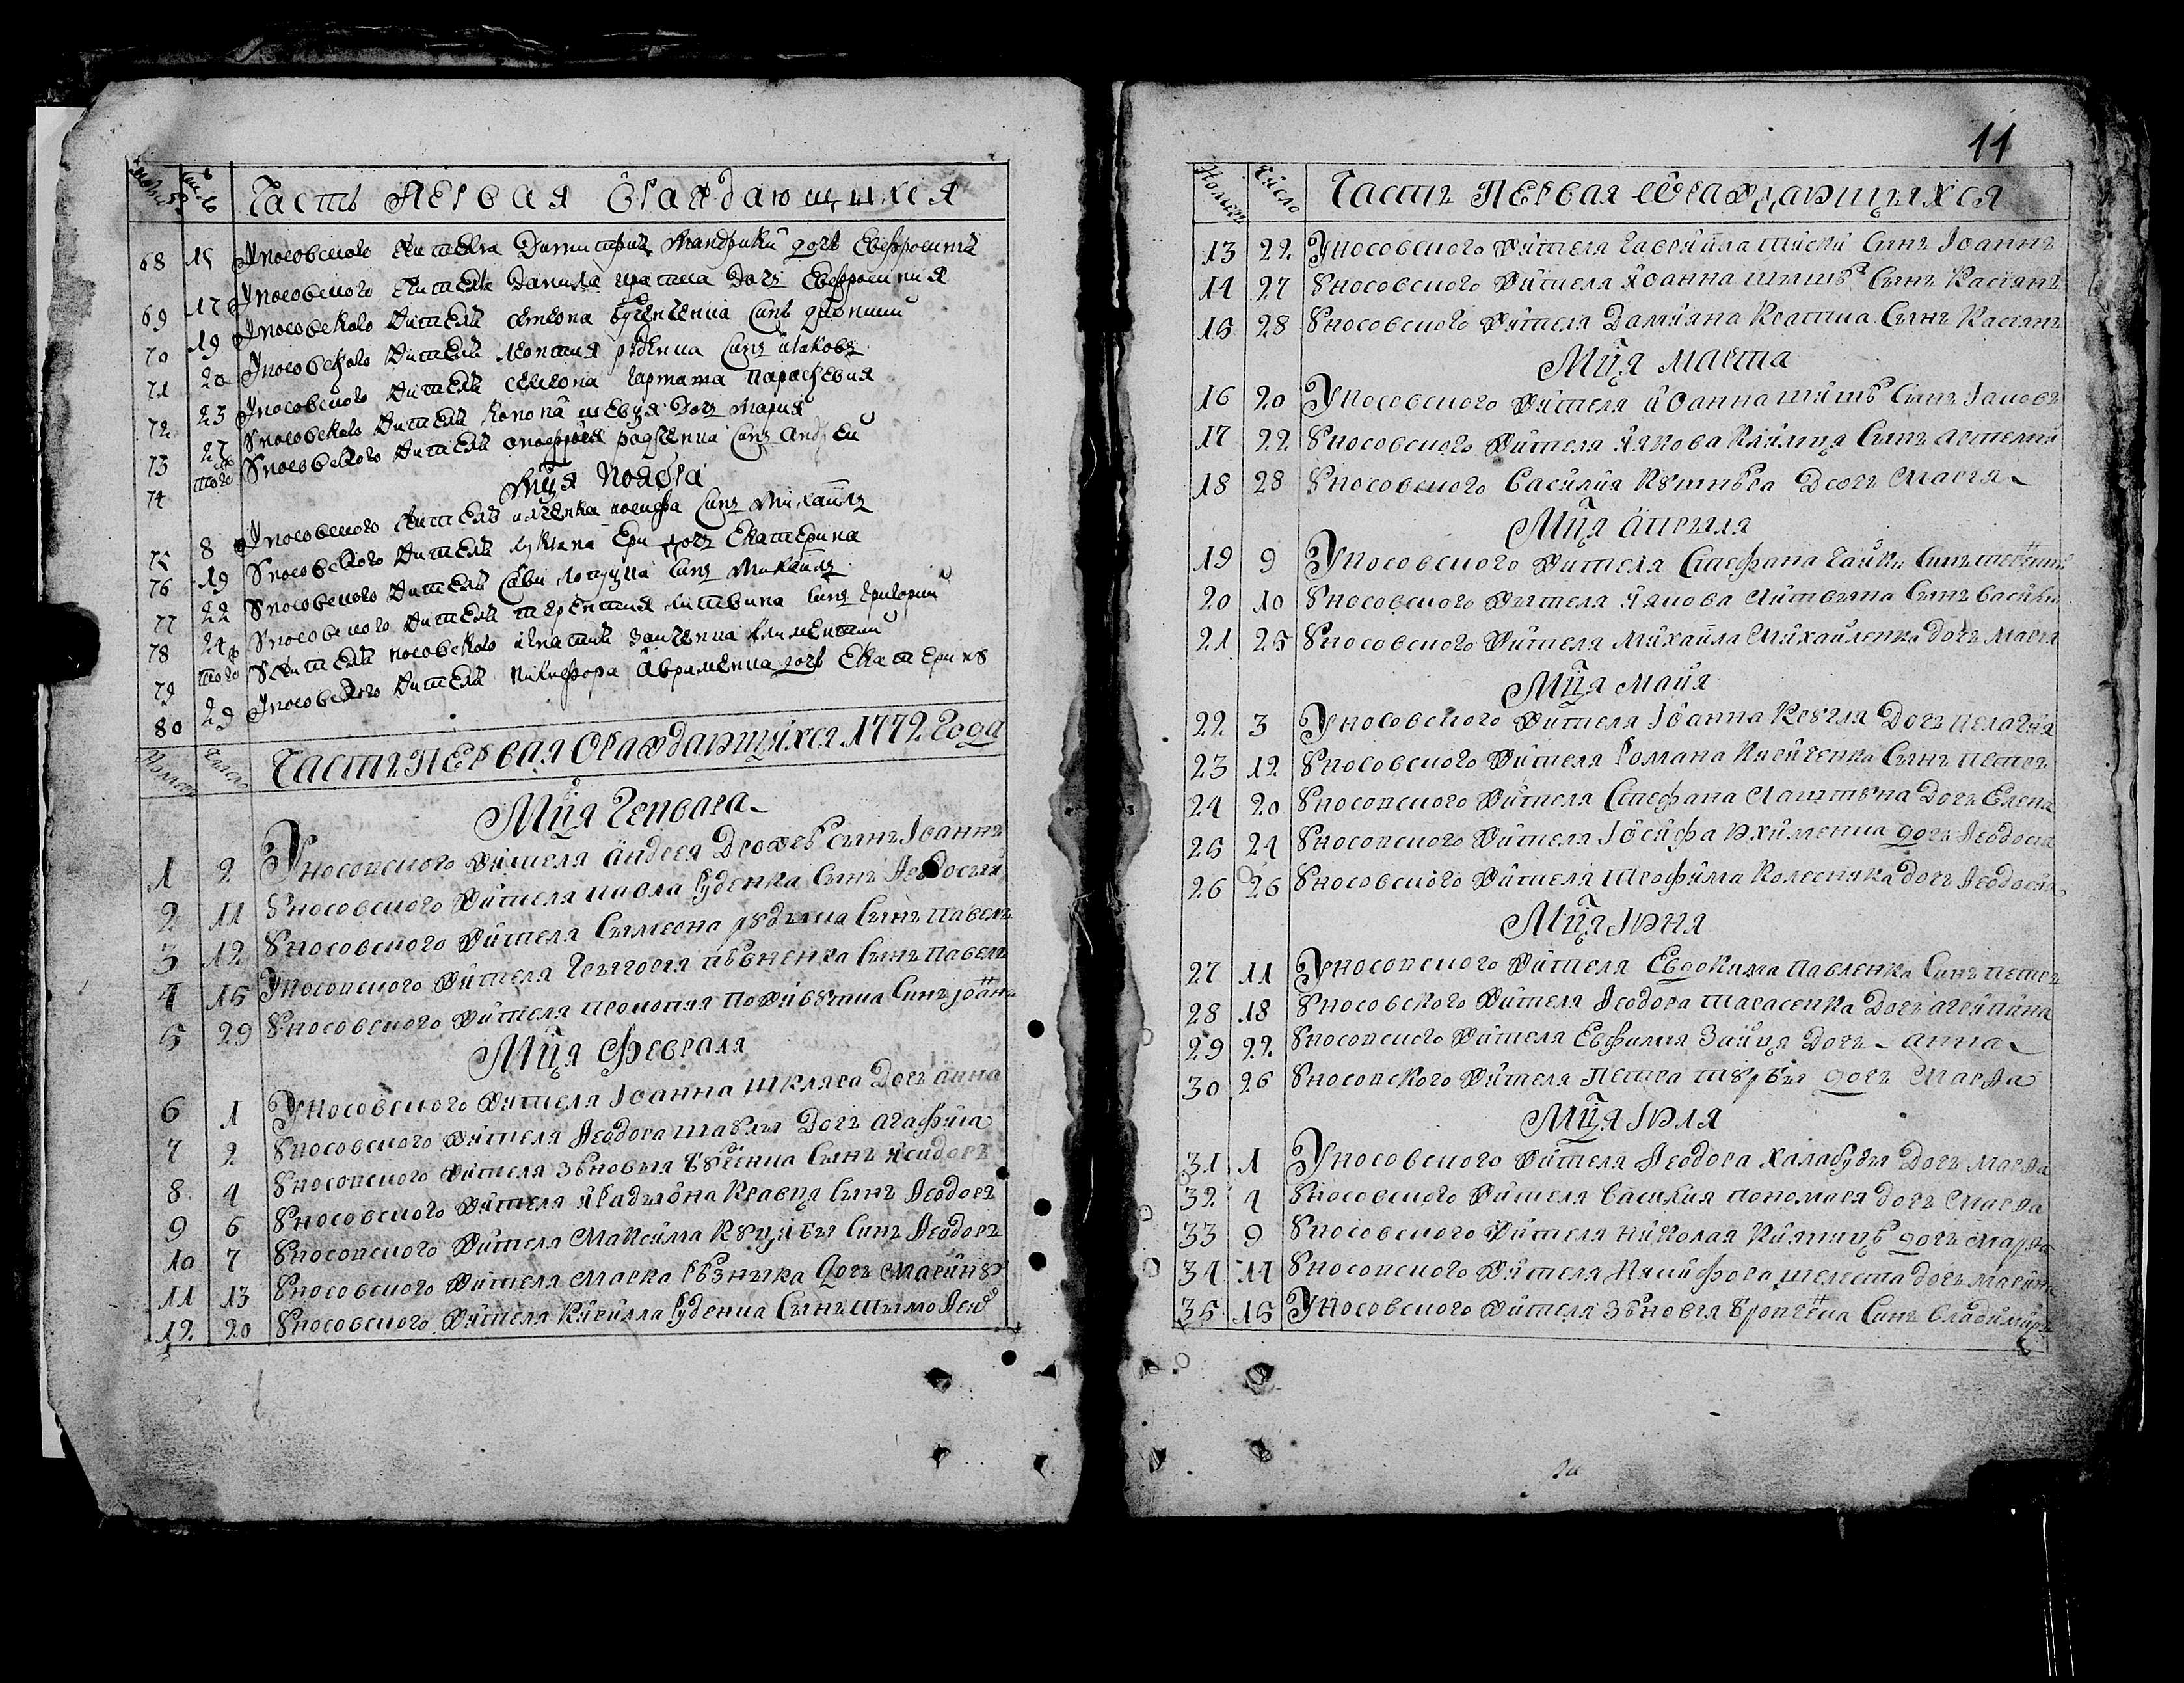 Часть Первая Ѡ раждающихся
68 15 У носовского жителя Димитрия Мандрики дочь Евфросинія
69 17 У носовского жителя Данила Кратка дочь Евфросинія
70 19 У носовского жителя Семіона сынъ Діонисий
71 20 У носовского жителя Леонтия Руденка сынъ Іаковъ
72 23 У носовского жителя Симеона Параскевия
73 27 У носовского жителя Конона Шевця дочь Мария
74 того У носовского жителя Онофрія Радченка сынъ Андрей
Мця Ноября
75 8 У носовского жителя Илченка Иосифа сынъ Михаилъ
76 19 У носовского жителя Лукіана дочь Екатерина
77 22 У носовского жителя Савы сынъ Михаилъ
78 24 У носовского жителя Терентия Литвина сынъ Григорий
79 того У жителя носовского Игнатия Заиченка Климентий
80 29 У носовского жителя Никифора Авраменка дочь Екатерина
Номеръ Число Часть Первая О раждающихся 1772 Года
Мця Генвара
1 2 У носовского жителя Андрея сынъ Іоаннъ
2 11 У носовского жителя Руденка сынъ Ѳеодосий
3 12 У носовского жителя Сымеона сынъ Павелъ
4 16 У носовского жителя Григория Пѣвненка сынъ Павелъ
5 29 У носовского жителя Прокопия сынъ Іоаннъ
Мця Февраля
6 1 У носовского жителя Іоанна Шкляра дочь Анна
7 2 У носовского жителя Ѳеодора дочь Агафія
8 4 У носовского жителя Зѣновыя сынъ Исидоръ
9 6 У носовского жителя Кравця сынъ Ѳеодоръ
10 7 У носовского жителя Максима сынъ Ѳеодоръ
11 13 У носовского жителя Марка Рѣзныка дочь Марина
12 20 У носовского жителя Кирилла Руденка сынъ Тымоѳей
11
Номеръ Число Часть Первая Ѡ раждающихся
13 22 У носовского жителя Гавриила сынъ Іоаннъ
14 27 У носовского жителя Иоанна сынъ Касіянъ
15 28 У носовского жителя Даміяна Кратка сынъ Касіянъ
Мця Марта
16 20 У носовского жителя Иоанна сынъ Іаковъ
17 22 У носовского жителя Якова сынъ Артемий
18 28 У носовского Василия Кушнѣра дочь Мария
Мця Апрыля
19 9 У носовского жителя Стефана Гайки сынъ
20 10 У носовского жителя Якова Литвына сынъ Василий
21 25 У носовского жителя Михаила Михайленка дочь Мария
Мця Майя
22 3 У носовского жителя Іоанна дочь Пелагия
23 12 У носовского жителя Романа сынъ Петръ
24 20 У носовского жителя Стефана дочь Елена
25 21 У носовского жителя Іосифа Юхименка дочь Ѳеодосия
26 26 У носовского жителя Трофима Колесныка дочь Ѳеодосия
Мця Іюня
27 11 У носовского жителя Евдокима Павленка сынъ Петръ
28 18 У носовского жителя Ѳеодора Тарасенка дочь Агрипина
29 22 У носовского жителя Евфимия Зайця дочь Анна
30 26 У носовского жителя Петра дочь Марѳа
Мця Іюля
31 1 У носовского жителя Ѳеодора Халабуды дочь Марѳа
32 4 У носовского жителя Василия Пономаря дочь Марѳа
33 9 У носовского жителя Николая дочь Марѳа
34 11 У носовского жителя Никифора Шелеста дочь Марина
35 15 У носовского жителя Зѣновия сынъ Владимиръ